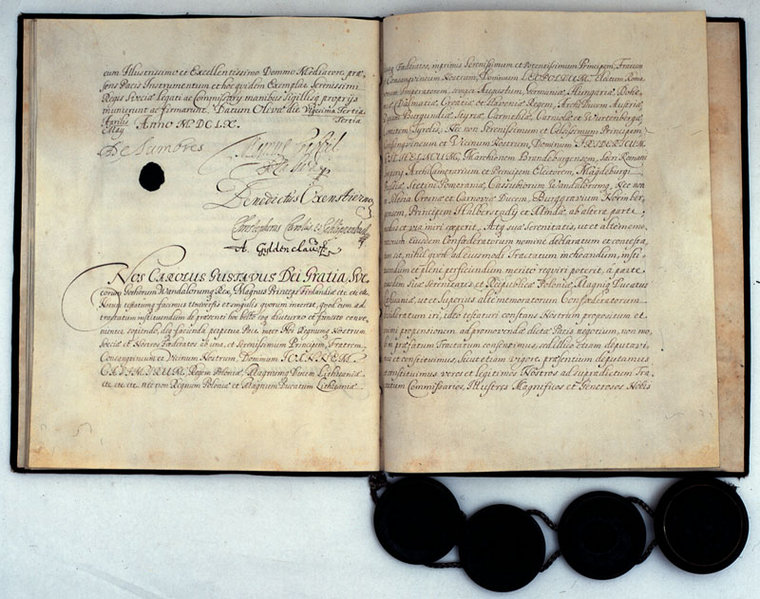 cum Illustrissimo et Excellentissimo Domino Mediatore, præ-
sens Pacis Instrumentum et hoc quidem Exemplar Serenissimi
Regis Sveciæ Legati ac Commissarij manibus Sigillisq proprijs
muniverunt ac firmarunt. Datum Olivæ die Vigesima Tertia
Aprilis
Tertia
Maij Anno MDCLX.
De Lumbres
Benedictus Oxenstierna
Christophorus Carolus de Schlippenbach
A. Gyldenclau
Nos CAROLUS GUSTAVUS Dei Gratia Sve-
corum Gothorum Wandalorumq Rex, Magnus Princeps Finlandiæ etc. etc. etc.
Notum testatumq facimus Universis et singulis quorum interest, quod cum ad
tractatum instituendum de præsenti hoc bello eoq diuturno et funesto conve-
nienter sopiendo, eiq fœliciendo perpetua Pace inter Nos Regnumq Nostrum
Sveciæ et Nostros Fœderatos ab una, et Serenissimum Principem, Fratrem,
Consanguineum et Vicinum Nostrum Dominum IOANNEM
CASIMIRUM, Regem Poloniæ, Magnumq Ducem Lithuaniæ
etc. etc. etc. nec non Regnum Poloniæ et Magnum Ducatum Lithuaniæ
Fœderatos, inprimis Serenissimum et Potentissimum Principem, Fratrem
Consanguineum Nostrum, Dominum LEOPOLDUM, Electum Roma-
Imperatorem, semper Augustum, Germaniæ, Hungariæ, Bohe-
Dalmatiæ, Croatiæ et Slavoniæ Regem, Archi Ducem Austriæ,
Burgundiæ, Styriæ, Carinthiæ, Carniolæ et Würtenbergæ,
Comitem Tyrolis, Nec non Serenissimum et Celsissimum Principem
Consanguineum et Vicinum Nostrum, Dominum FRIDERICUM
WILHELMUM, Marchionem Brandeburgensem, Sacri Romani
Imperij Archicamerarium et Principem Electorem, Magdeburgi
Stetini Pomeraniæ, Cassubiorum Wandalorumq, Nec non
Silesia Crosnæ et Carnoviæ Ducem, Burggravium Norimber-
gensem, Principem Halberstadij et Mindæ, ab altera parte,
modus et via iniri queat, Atq sua Serenitatis, ut et alte memo-
ratorum Eiusdem Confœderatorum nomine declaratum et contesta-
tum sit, nihil quod ad eiusmodi Tractatum inchoandum, insti-
tuendum et plene perficiendum merito requiri poterit, a parte
Suæ Serenitatis et Reipublicæ Poloniæ Magniq Ducatus
Lithuaniæ, ut et Superius alte memoratorum Confœderatorum
desideratum iri, ideo testaturi constans Nostrum propositum et
propensionem ad promovendum dictæ Pacis negotium, non mo-
do in præfatum Tractatum consensimus, sed ideo etiam deputavi-
mus et constituimus, sicut etiam vigore præsentium deputamus
constituimus veros et legitimos Nostros ad supradictum Tra-
ctatum Commissarios, Illustres Magnificos et Generosos Nobis